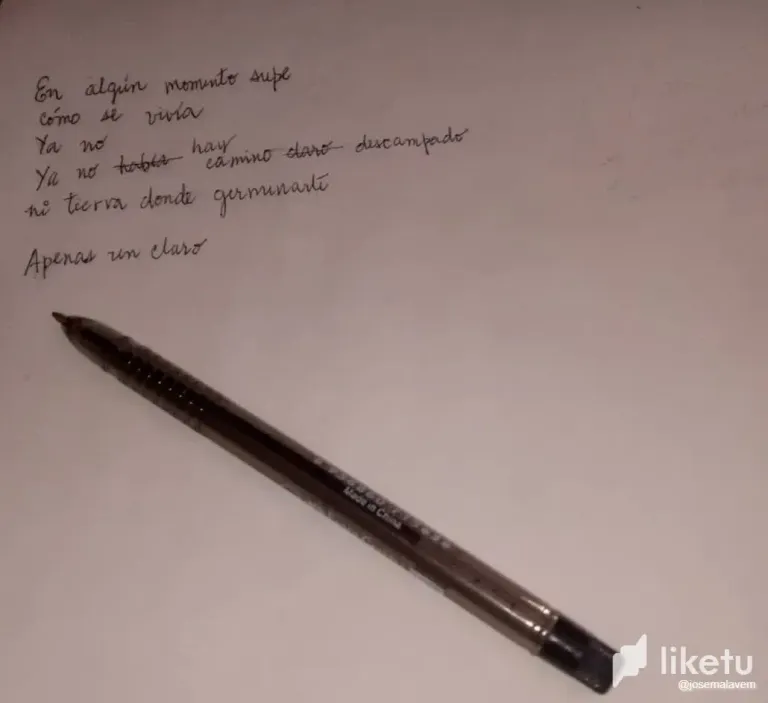 En algún momento supe
cómo se vivía
Ya no
Ya no había hay camino claro descampado
ni tierra donde germinarte
Apenas un claro
Made in China
liketu
@josemalavem